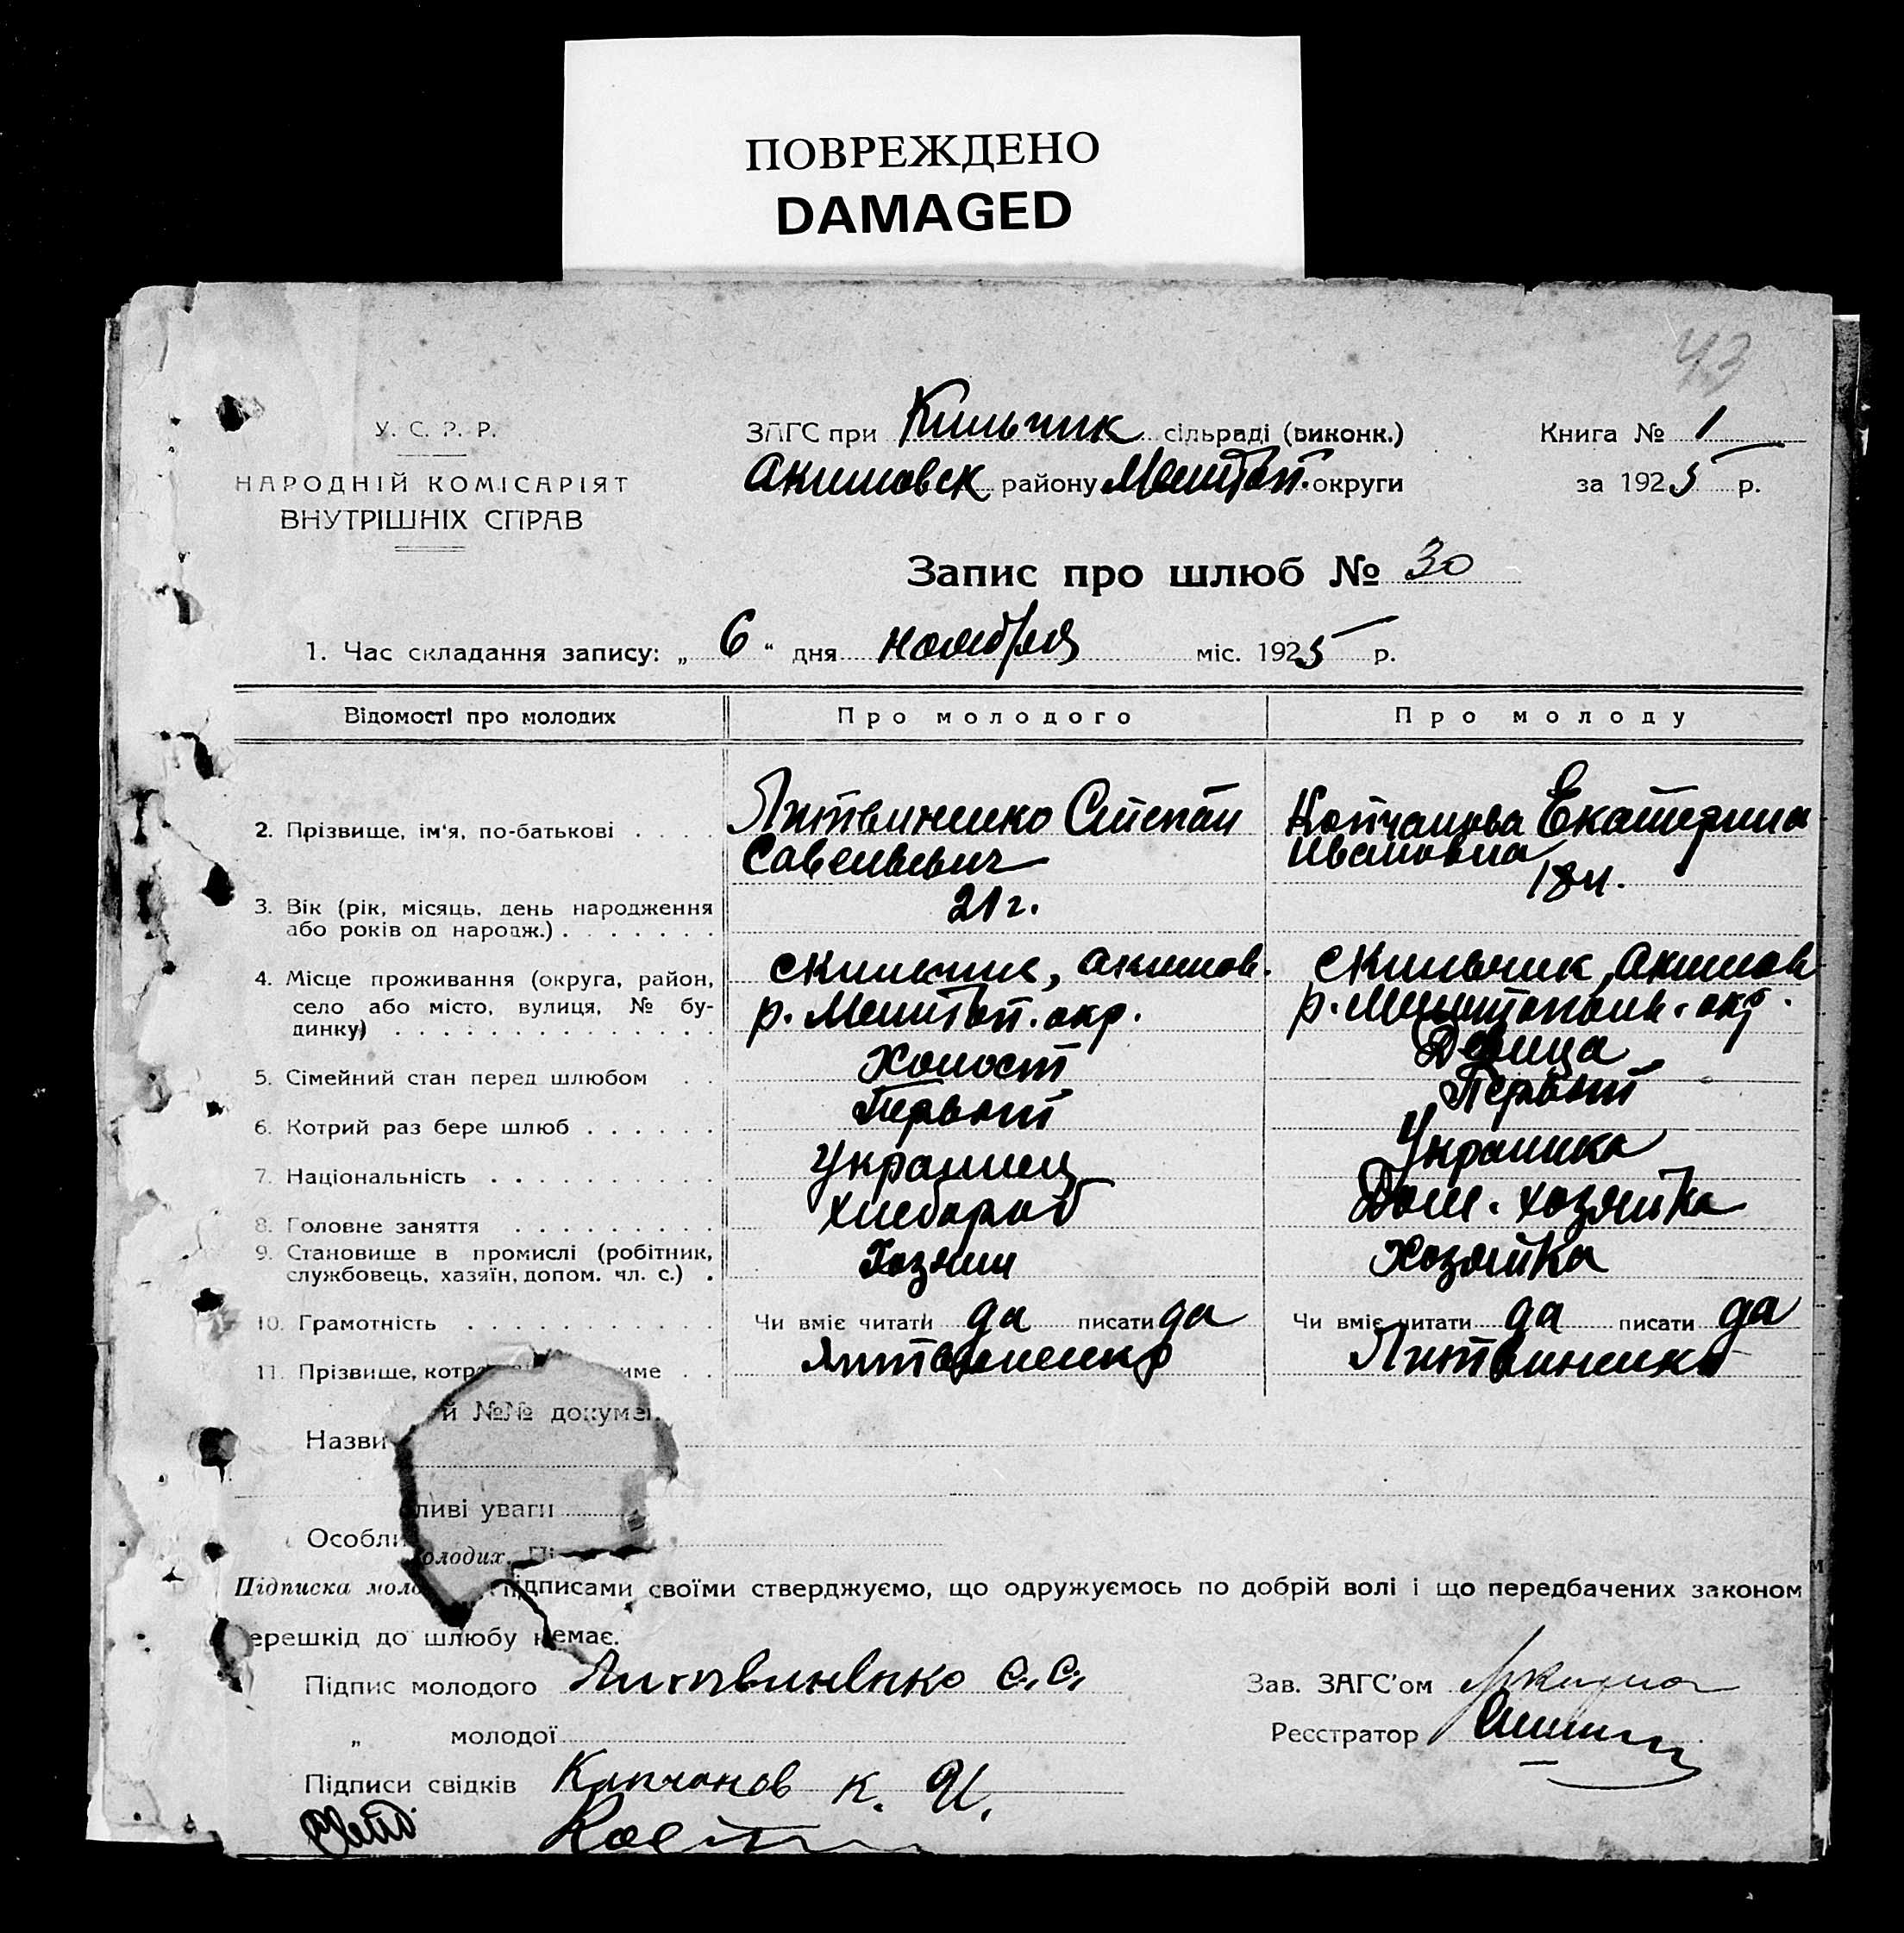 ПОВРЕЖДЕНО
DAMAGED
43
У. С. Р. Р.
НАРОДНІЙ КОМІСАРІЯТ
ВНУТРІШНІХ СПРАВ
ЗАГС при Кильчик сільраді (виконк.)
Акимовск району Мелитоп. округи
Книга № 1
за 1925 р.
Запис про шлюб № 30
1. Час складання запису: „ 6 “ дня ноября міс. 1925 р.
Відомості про молодих Про молодого Про молоду
2. Прізвище, ім'я, по-батькові Литвиненко Степан Савельевич Копчанова Екатерина Ивановна
3. Вік (рік, місяць, день народження або років од народж.) 21 г. 18 л.
4. Місце проживання (округа, район, село або місто, вулиця, № будинку) с Кильчик, Акимов. р. Мелитоп. окр. с Кильчик, Акимов р. Мелитополь. окр.
5. Сімейний стан перед шлюбом Холост Девица
6. Котрий раз бере шлюб Первый Первый
7. Національність Украинец Украинка
8. Головне заняття Хлебороб Дом. хозяйка
9. Становище в промислі (робітник, службовець, хазяїн, допом. чл. с.) Хозяин Хозяйка
10. Грамотність Чи вміє читати да писати да Чи вміє читати да писати да
11. Прізвище, котр име Литвиненко Литвиненко
й №№ докумен
Назви
ливі уваги
Особли
олодих. Пі
Підписка моло підписами своїми стверджуємо, що одружуємось по добрій волі і що передбачених законом
ерешкід до шлюбу немає.
Підпис молодого Литвиненко С. С.
„ молодої
Підписи свідків Капчонов К. И.
Зав. ЗАГС'ом
Реєстратор